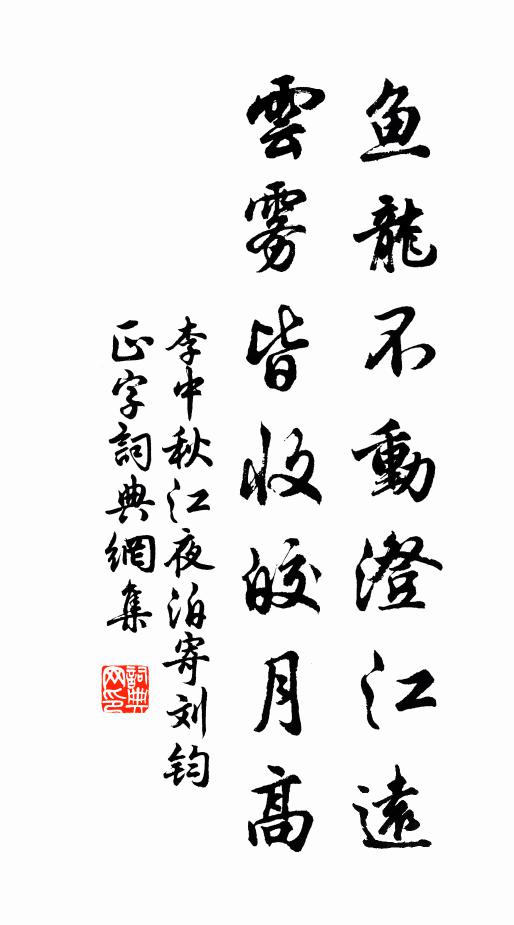 鱼龍不動澄江遠
雲雾皆收皎月高
李中秋江夜泊寄刘钧
正字詞典網集
詞典
网印